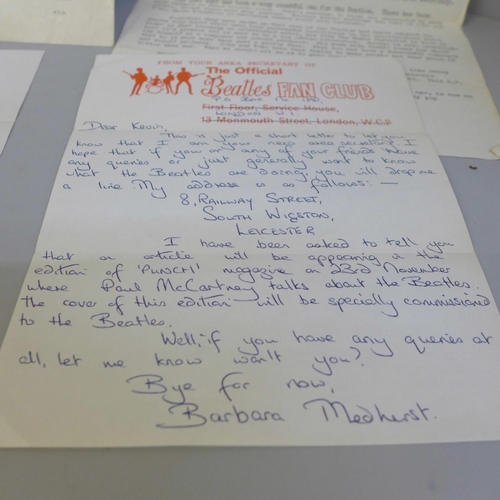 FROM YOUR AREA SECRETARY OF
The Official
Beatles FAN CLUB
First Floor, Service House,
LONDON W.1.
13 Monmouth Street, London, W.C.2
Dear Kevin,
This is just a short letter to let you
know that I am your new area secretary. I
hope that if you or any of your friends have
any queries or just generally want to know
what the Beatles are doing, you'll drop me
a line. My address is as follows: —
8, RAILWAY STREET,
SOUTH WIGSTON,
LEICESTER
I have been asked to tell you
that an article will be appearing in the
edition of 'PUNCH' magazine on 23rd November
where Paul McCartney talks about the Beatles.
The cover of this edition will be specially commissioned
to the Beatles.
Well, if you have any queries at
all, let me know won't you?
Bye for now,
Barbara Medherst.